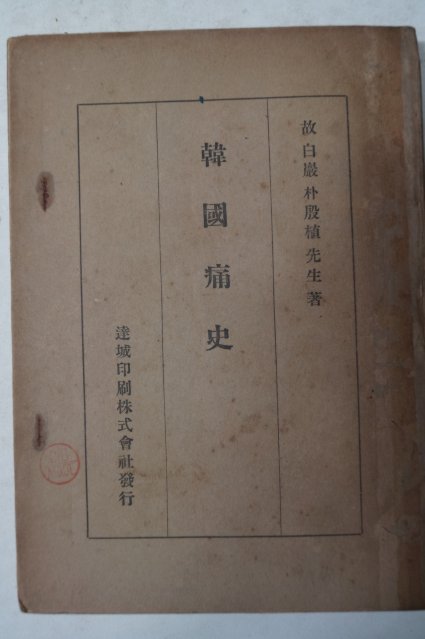 故 白巖 朴殷植 先生 著
韓國痛史
達城印刷株式會社發行